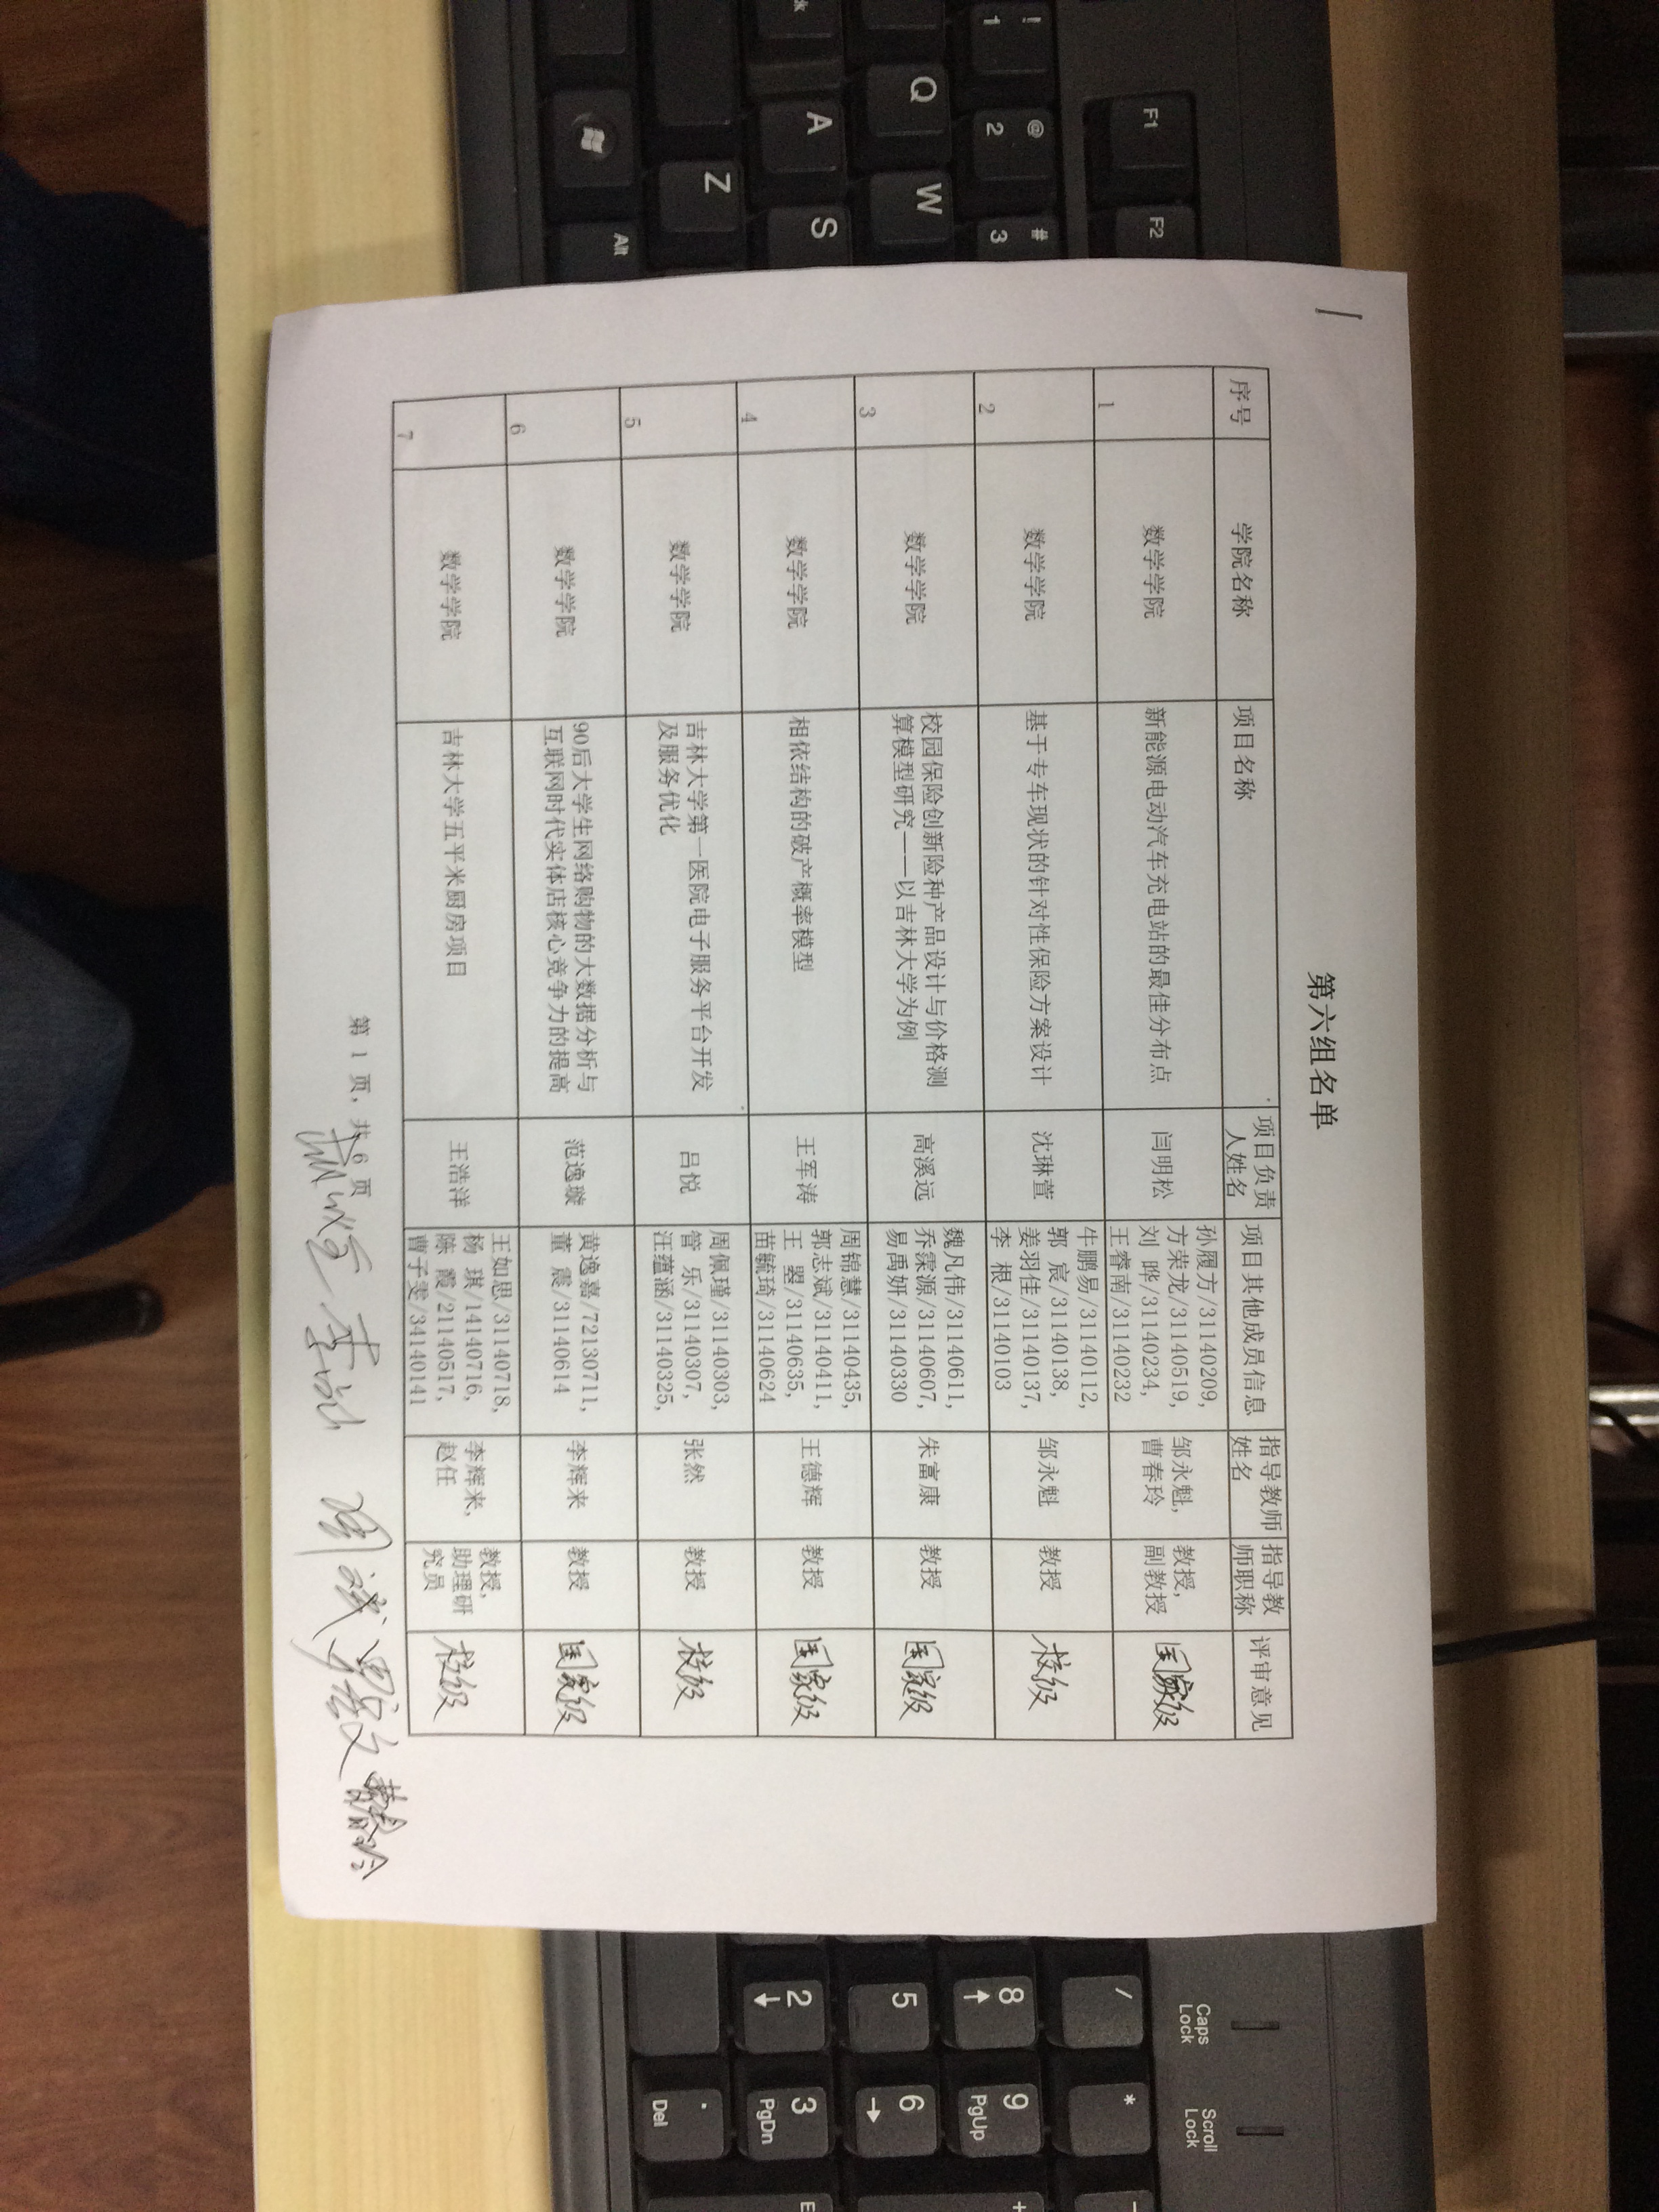 第六组名单
序号 学院名称 项目名称 项目负责人姓名 项目其他成员信息 指导教师姓名 指导教师职称 评审意见
1 数学学院 新能源电动汽车充电站的最佳分布点 闫明松 孙履方/31140209, 方荣龙/31140519, 刘 晔/31140234, 王睿南/31140232 邹永魁, 曹春玲 教授, 副教授 国家级
2 数学学院 基于专车现状的针对性保险方案设计 沈琳萱 牛鹏易/31140112, 郭 宸/31140138, 姜羽佳/31140137, 李 根/31140103 邹永魁 教授 校级
3 数学学院 校园保险创新险种产品设计与价格测算模型研究——以吉林大学为例 高溪远 魏凡伟/31140611, 乔霂源/31140607, 易禹妍/31140330 朱富康 教授 国家级
4 数学学院 相依结构的破产概率模型 王军涛 周锦慧/31140435, 郭志斌/31140411, 王 曌/31140635, 苗毓琦/31140624 王德辉 教授 国家级
5 数学学院 吉林大学第一医院电子服务平台开发及服务优化 吕悦 周佩瑾/31140303, 管 乐/31140307, 汪蕴涵/31140325, 张然 教授 校级
6 数学学院 90后大学生网络购物的大数据分析与互联网时代实体店核心竞争力的提高 范逸璇 黄逸嘉/72130711, 董 震/31140614 李辉来 教授 国家级
7 数学学院 吉林大学五平米厨房项目 王浩洋 王如思/31140718, 杨 琪/14140716, 陈 霞/21140517, 曹子雯/34140141 李辉来, 赵任 教授, 助理研究员 校级
第 1 页, 共 6 页
周斌 曹春玲
F1 F2
! 1 @ 2 # 3
Q W
A S
Z
Alt
Caps Lock Scroll Lock
/ * -
8 9 PgUp +
5 6
2 3 PgDn E
. Del